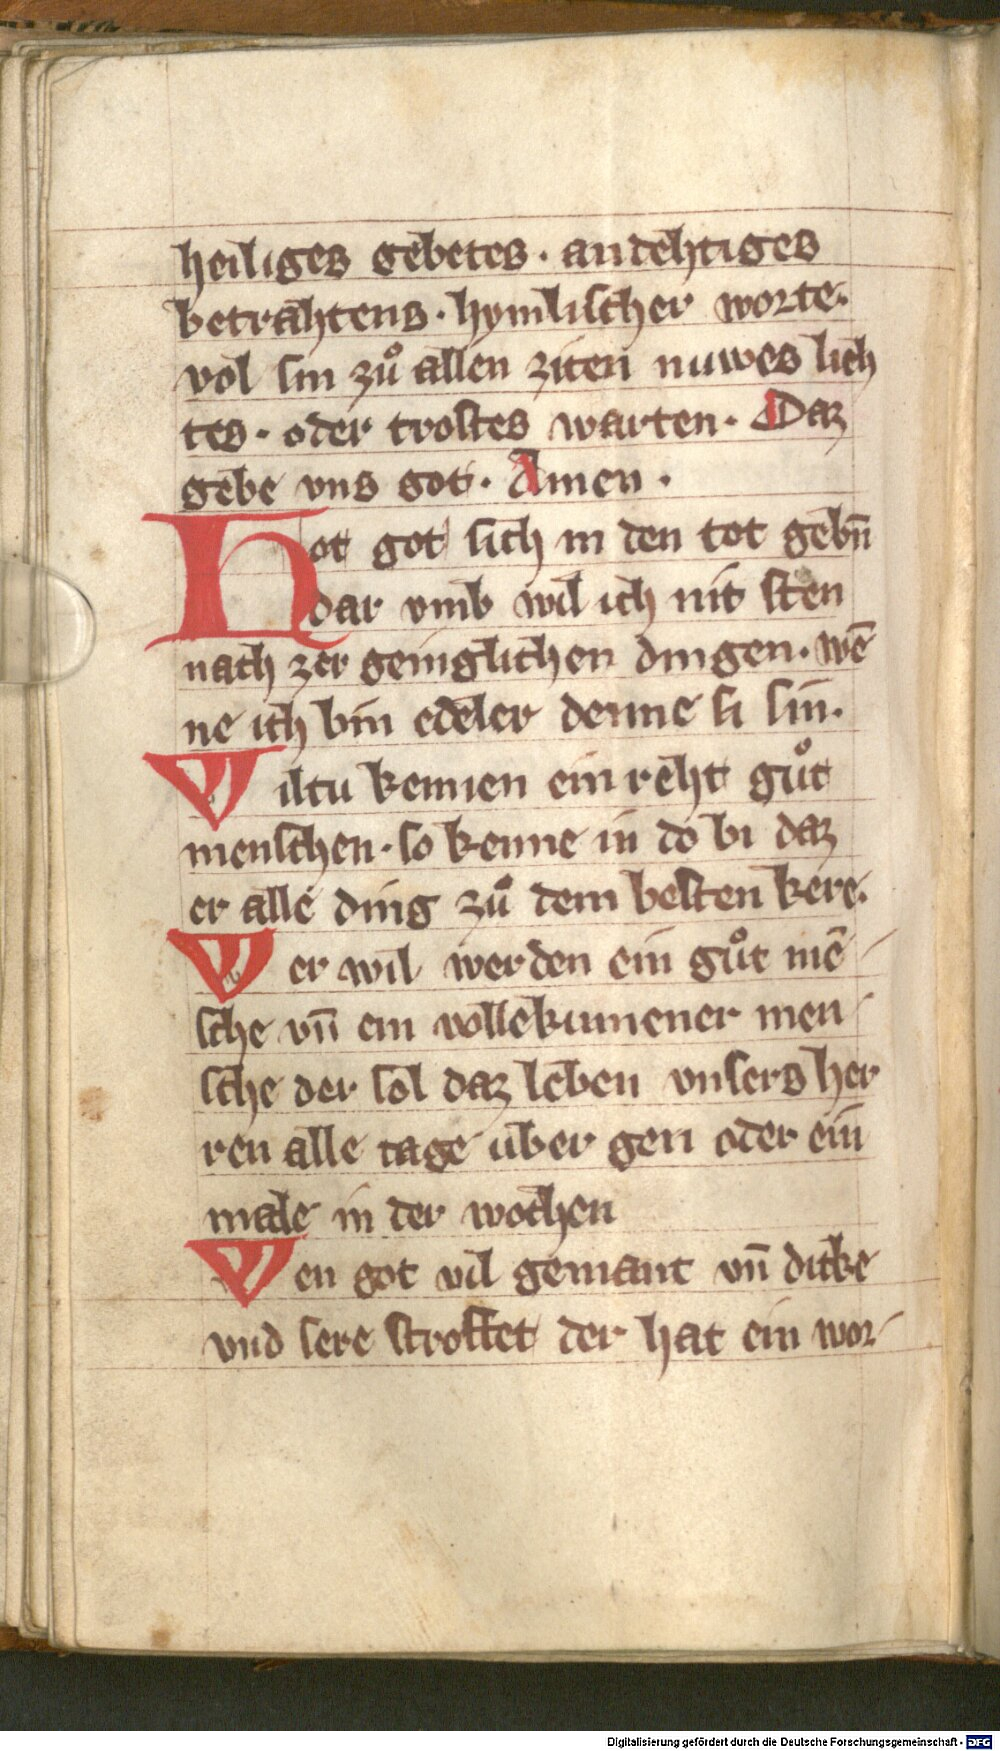 heiliges gebetes · andehtiges
betrahtens · hymlischer worte·
vol sin zuͦ allen ziten nuwes lieh
tes · oder trostes warten · Daz
gebe vns got · Amen ·
Hot got sich in den tot gebn̄
dar vmb wil ich nit sten
nach zer geniglichen dingen · wē
ne ich bin edeler denne si sin·
Wiltu kennen ein reht guͦt
menschen · so kenne in do bi daz
er alle ding zuͦ dem besten kere·
Wer wil werden ein guͦt mē
sche vn̄ ein vollekumener men
sche der sol daz leben vnsers her
ren alle tage über gen oder ein
male in der wochen
Wen got vil gemant vn̄ dicke
vnd sere stroffet der hat ein wor
Digitalisierung gefördert durch die Deutsche Forschungsgemeinschaft - DFG